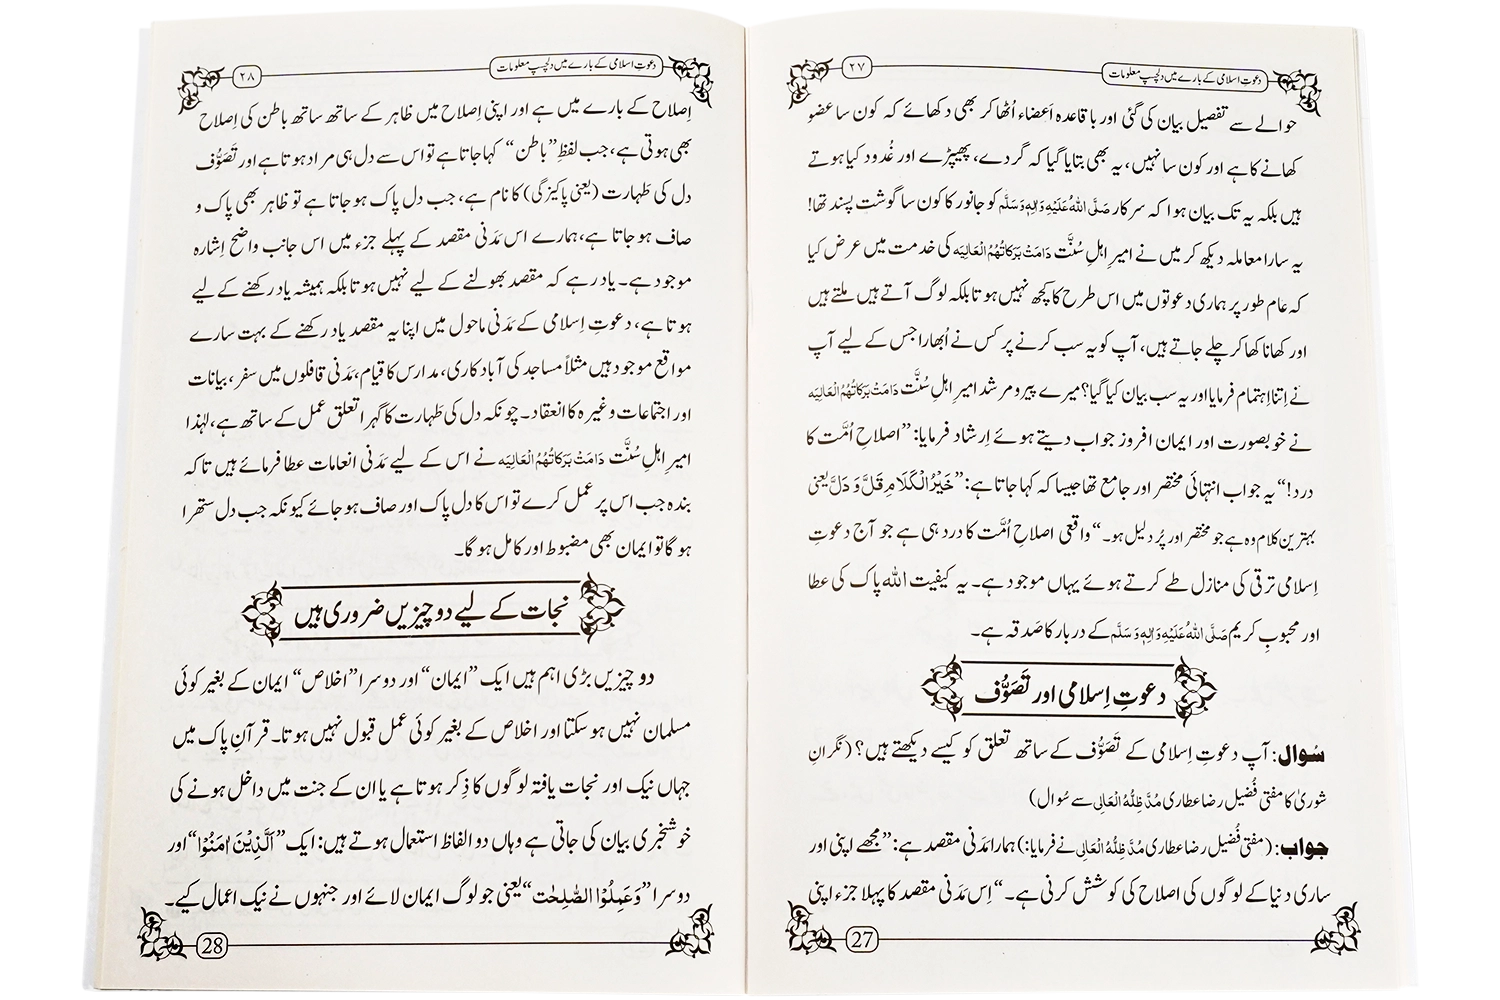 دعوتِ اسلامی کے بارے میں دلچسپ معلومات
۲۷
حوالے سے تفصیل بیان کی گئی اور باقاعدہ اَعضاء اُٹھا کر بھی دکھائے کہ کون سا عضو
کھانے کا ہے اور کون سا نہیں، یہ بھی بتایا گیا کہ گردے، پھیپڑے اور غُدود کیا ہوتے
ہیں بلکہ یہ تک بیان ہوا کہ سرکار صَلَّی اللہُ عَلَیْہِ وَاٰلِہٖ وَسَلَّم کو جانور کا کون سا گوشت پسند تھا!
یہ سارا معاملہ دیکھ کر میں نے امیرِ اہلِ سُنَّت دَامَتْ بَرَکاتُہُمُ الْعَالِیَہ کی خدمت میں عرض کیا
کہ عام طور پر ہماری دعوتوں میں اس طرح کا کچھ نہیں ہوتا بلکہ لوگ آتے ہیں ملتے ہیں
اور کھانا کھا کر چلے جاتے ہیں، آپ کو یہ سب کرنے پر کس نے اُبھارا جس کے لیے آپ
نے اِتنا اِہتمام فرمایا اور یہ سب بیان کیا گیا؟ میرے پیر و مرشد امیرِ اہلِ سُنَّت دَامَتْ بَرَکاتُہُمُ الْعَالِیَہ
نے خوبصورت اور ایمان افروز جواب دیتے ہوئے اِرشاد فرمایا: ”اصلاحِ اُمَّت کا
درد!“ یہ جواب انتہائی مختصر اور جامع تھا جیسا کہ کہا جاتا ہے: ”خَیْرُ الْکَلَامِ قَلَّ وَ دَلَّ یعنی
بہترین کلام وہ ہے جو مختصر اور پُر دلیل ہو۔“ واقعی اصلاحِ اُمَّت کا درد ہی ہے جو آج دعوتِ
اِسلامی ترقی کی منازل طے کرتے ہوئے یہاں موجود ہے۔ یہ کیفیت اللہ پاک کی عطا
اور محبوبِ کریم صَلَّی اللہُ عَلَیْہِ وَاٰلِہٖ وَسَلَّم کے دربار کا صَدقہ ہے۔
دعوتِ اِسلامی اور تَصَوُّف
سُوال: آپ دعوتِ اِسلامی کے تَصَوُّف کے ساتھ تعلق کو کیسے دیکھتے ہیں؟ (نگرانِ
شوریٰ کا مفتی فُضیل رضا عطاری مُدَّ ظِلُّہُ الْعَالِی سے سُوال)
جواب: (مفتی فُضیل رضا عطاری مُدَّ ظِلُّہُ الْعَالِی نے فرمایا:) ہمارا مَدَنی مقصد ہے: ”مجھے اپنی اور
ساری دنیا کے لوگوں کی اصلاح کی کوشش کرنی ہے۔“ اِس مَدَنی مقصد کا پہلا جزء اپنی
27
دعوتِ اسلامی کے بارے میں دلچسپ معلومات
۲۸
اِصلاح کے بارے میں ہے اور اپنی اِصلاح میں ظاہر کے ساتھ ساتھ باطن کی اِصلاح
بھی ہوتی ہے، جب لفظِ ”باطن“ کہا جاتا ہے تو اس سے دل ہی مراد ہوتا ہے اور تَصَوُّف
دل کی طَہارت (یعنی پاکیزگی) کا نام ہے، جب دل پاک ہو جاتا ہے تو ظاہر بھی پاک و
صاف ہو جاتا ہے، ہمارے اس مَدَنی مقصد کے پہلے جزء میں اس جانب واضح اِشارہ
موجود ہے۔ یاد رہے کہ مقصد بھولنے کے لیے نہیں ہوتا بلکہ ہمیشہ یاد رکھنے کے لیے
ہوتا ہے، دعوتِ اِسلامی کے مَدَنی ماحول میں اپنا یہ مقصد یاد رکھنے کے بہت سارے
مواقع موجود ہیں مثلاً مساجد کی آباد کاری، مدارس کا قیام، مَدَنی قافلوں میں سفر، بیانات
اور اجتماعات وغیرہ کا انعقاد۔ چونکہ دل کی طَہارت کا گہرا تعلق عمل کے ساتھ ہے، لہٰذا
امیرِ اہلِ سُنَّت دَامَتْ بَرَکاتُہُمُ الْعَالِیَہ نے اس کے لیے مَدَنی انعامات عطا فرمائے ہیں تاکہ
بندہ جب اس پر عمل کرے تو اس کا دل پاک اور صاف ہو جائے کیونکہ جب دل ستھرا
ہو گا تو ایمان بھی مضبوط اور کامل ہو گا۔
نجات کے لیے دو چیزیں ضروری ہیں
دو چیزیں بڑی اہم ہیں ایک ”ایمان“ اور دوسرا ”اخلاص“ ایمان کے بغیر کوئی
مسلمان نہیں ہو سکتا اور اخلاص کے بغیر کوئی عمل قبول نہیں ہوتا۔ قرآنِ پاک میں
جہاں نیک اور نجات یافتہ لوگوں کا ذِکر ہوتا ہے یا ان کے جنت میں داخل ہونے کی
خوشخبری بیان کی جاتی ہے وہاں دو الفاظ استعمال ہوتے ہیں: ایک ”اَلَّذِیْنَ اٰمَنُوْا“ اور
دوسرا ”وَعَمِلُوا الصّٰلِحٰت“ یعنی جو لوگ ایمان لائے اور جنہوں نے نیک اعمال کیے۔
28